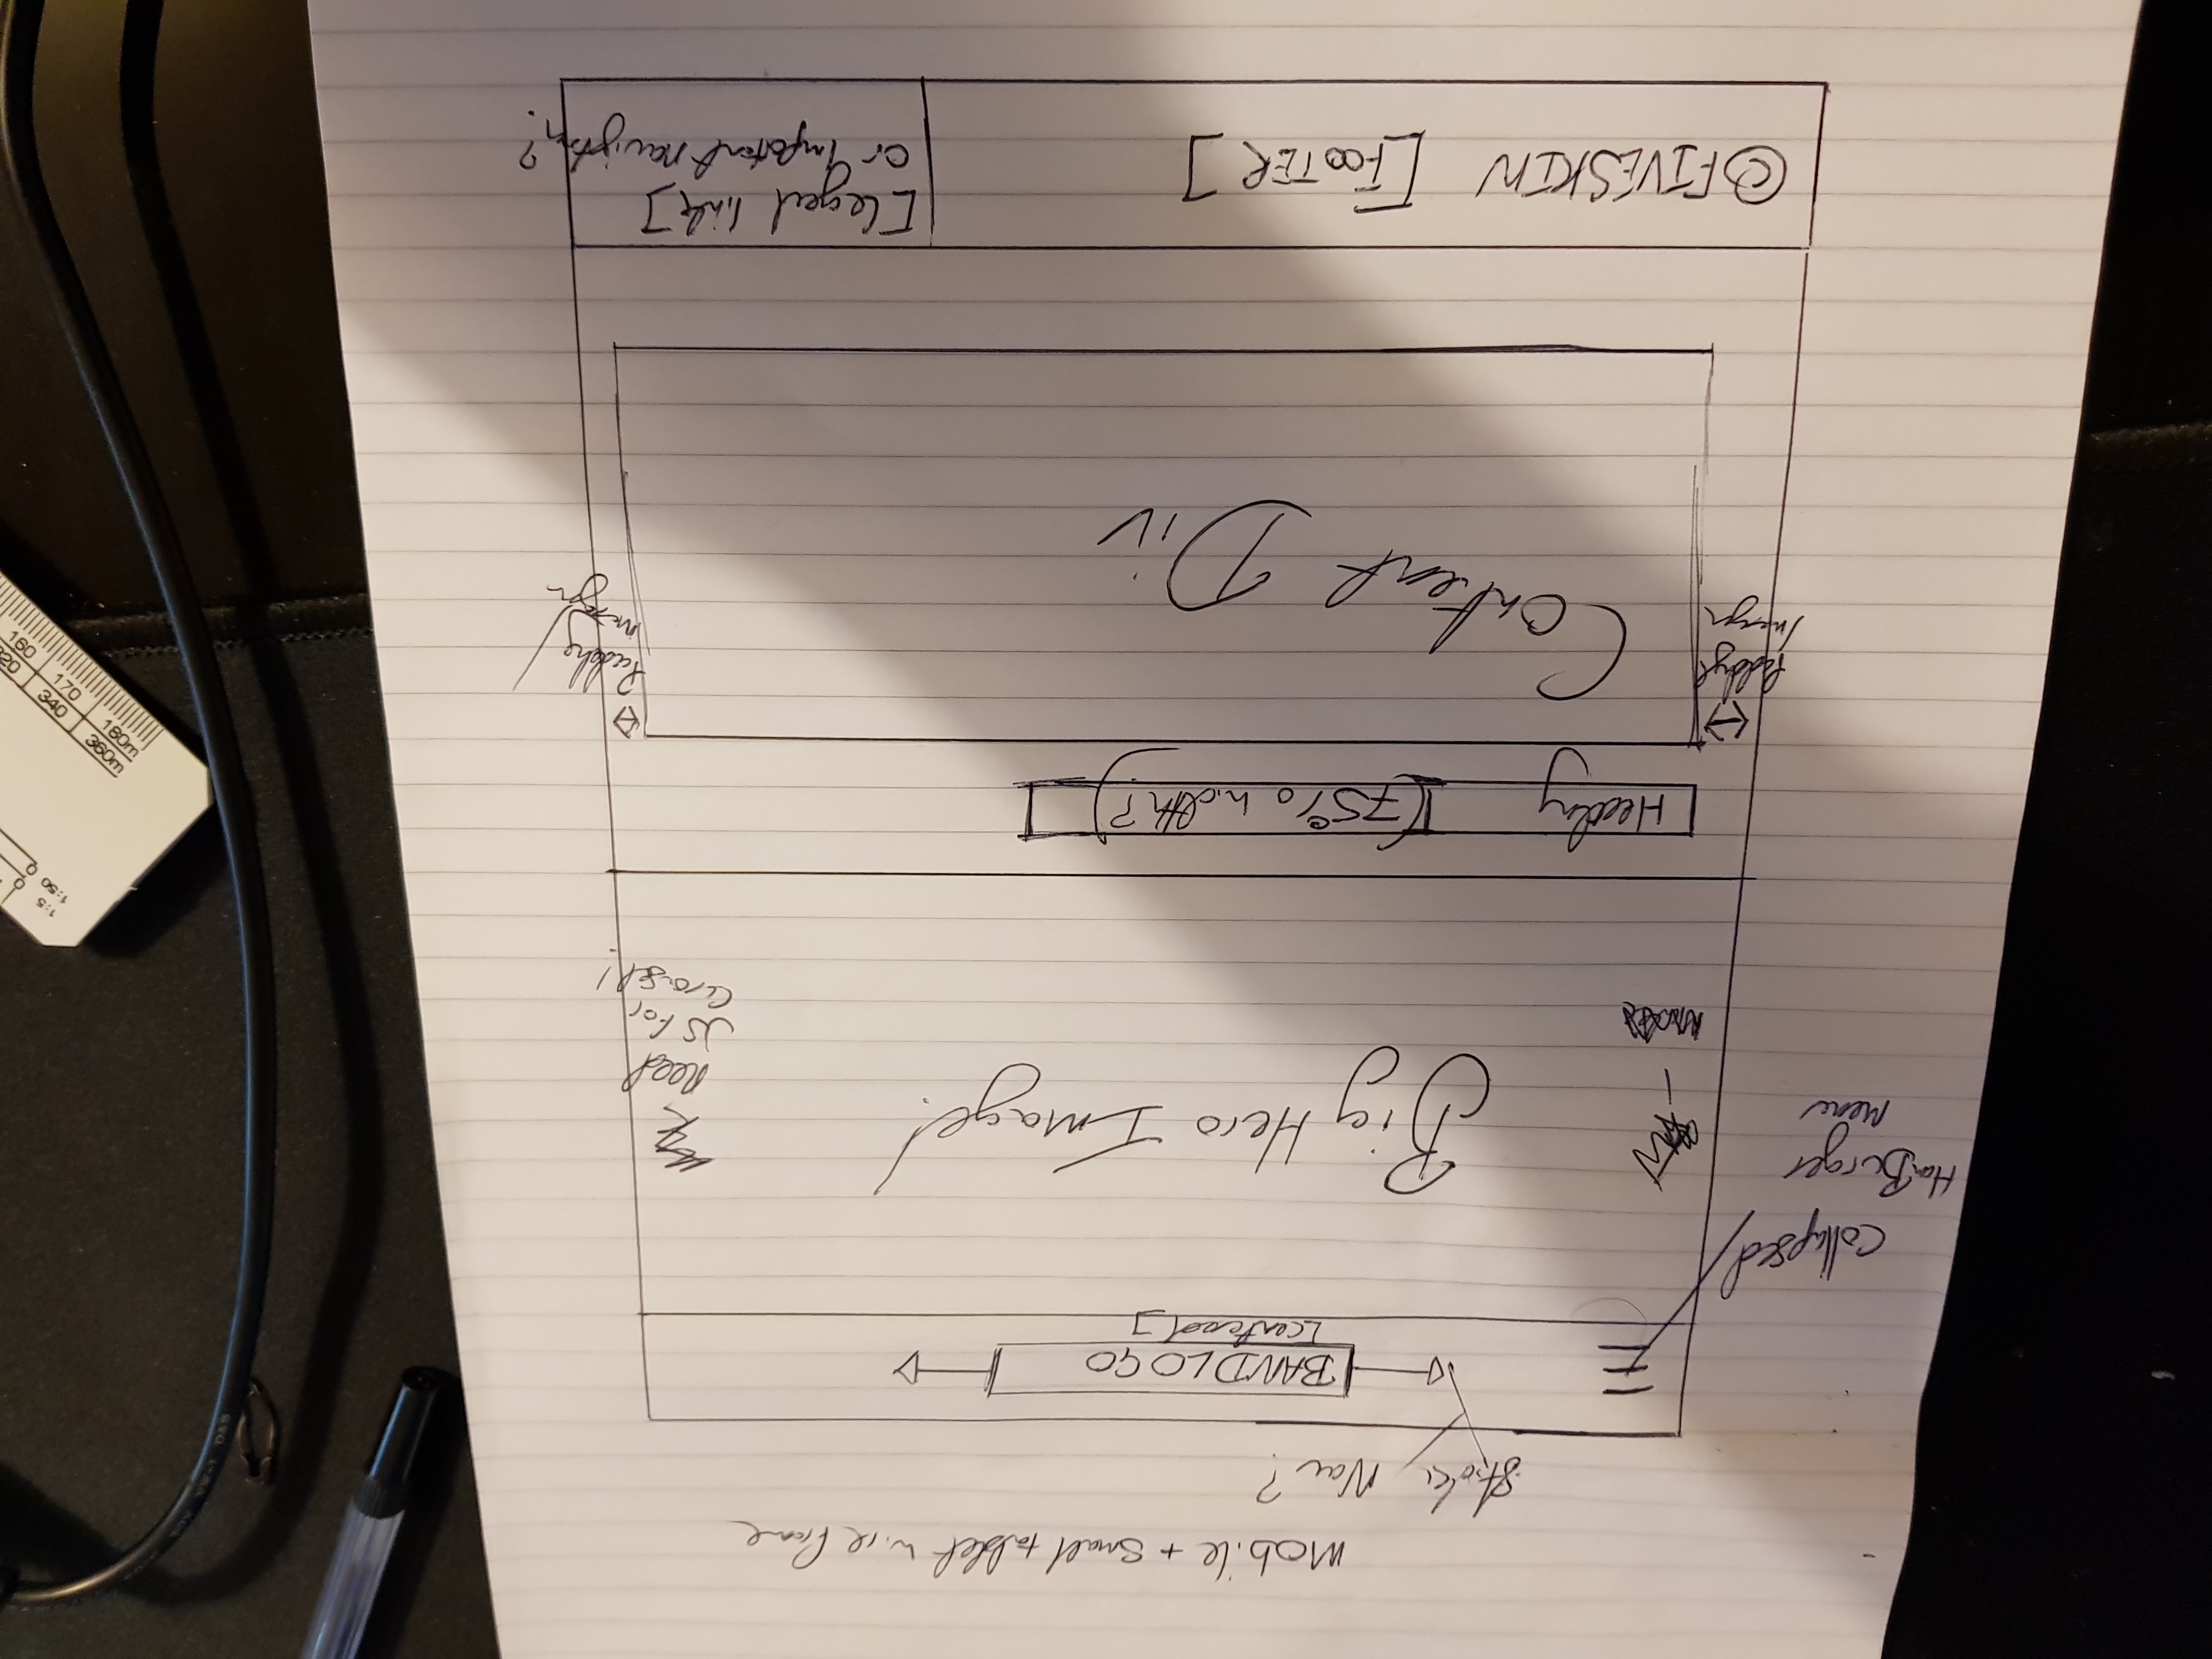 Mobile + Small tablet wire frame
Sticky Nav?
BAND LOGO
[centered]
Collapsed
HamBurger
Menu
Big Hero Image!
Need
JS for
Carousel!
Heading
(75% width?)
Padding
/margin
Padding/
margin
Content Div
© FIVESKIN [FOOTER]
[legal links]
or important navigation?
1:5
1:50
0
0
320
160
340
170
360m
180m
VW-1